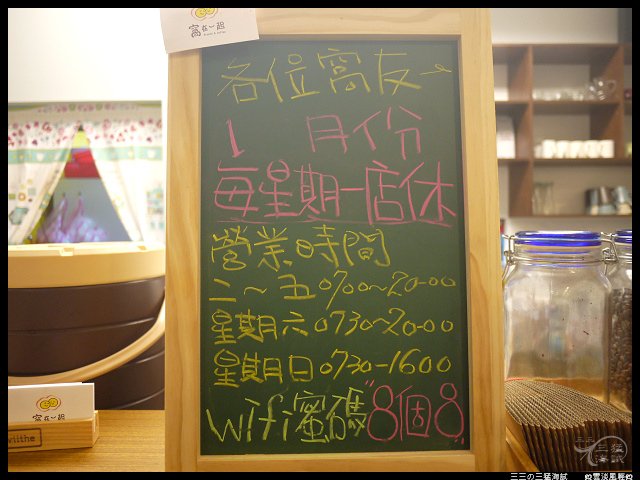 窩在一起
各位窩友~
1 月份
每星期一店休
營業時間
二~五0700~20-00
星期六0730~20-00
星期日0730-1600
wifi蜜碼"8個8"
窩在一起
三三の三猛海賊